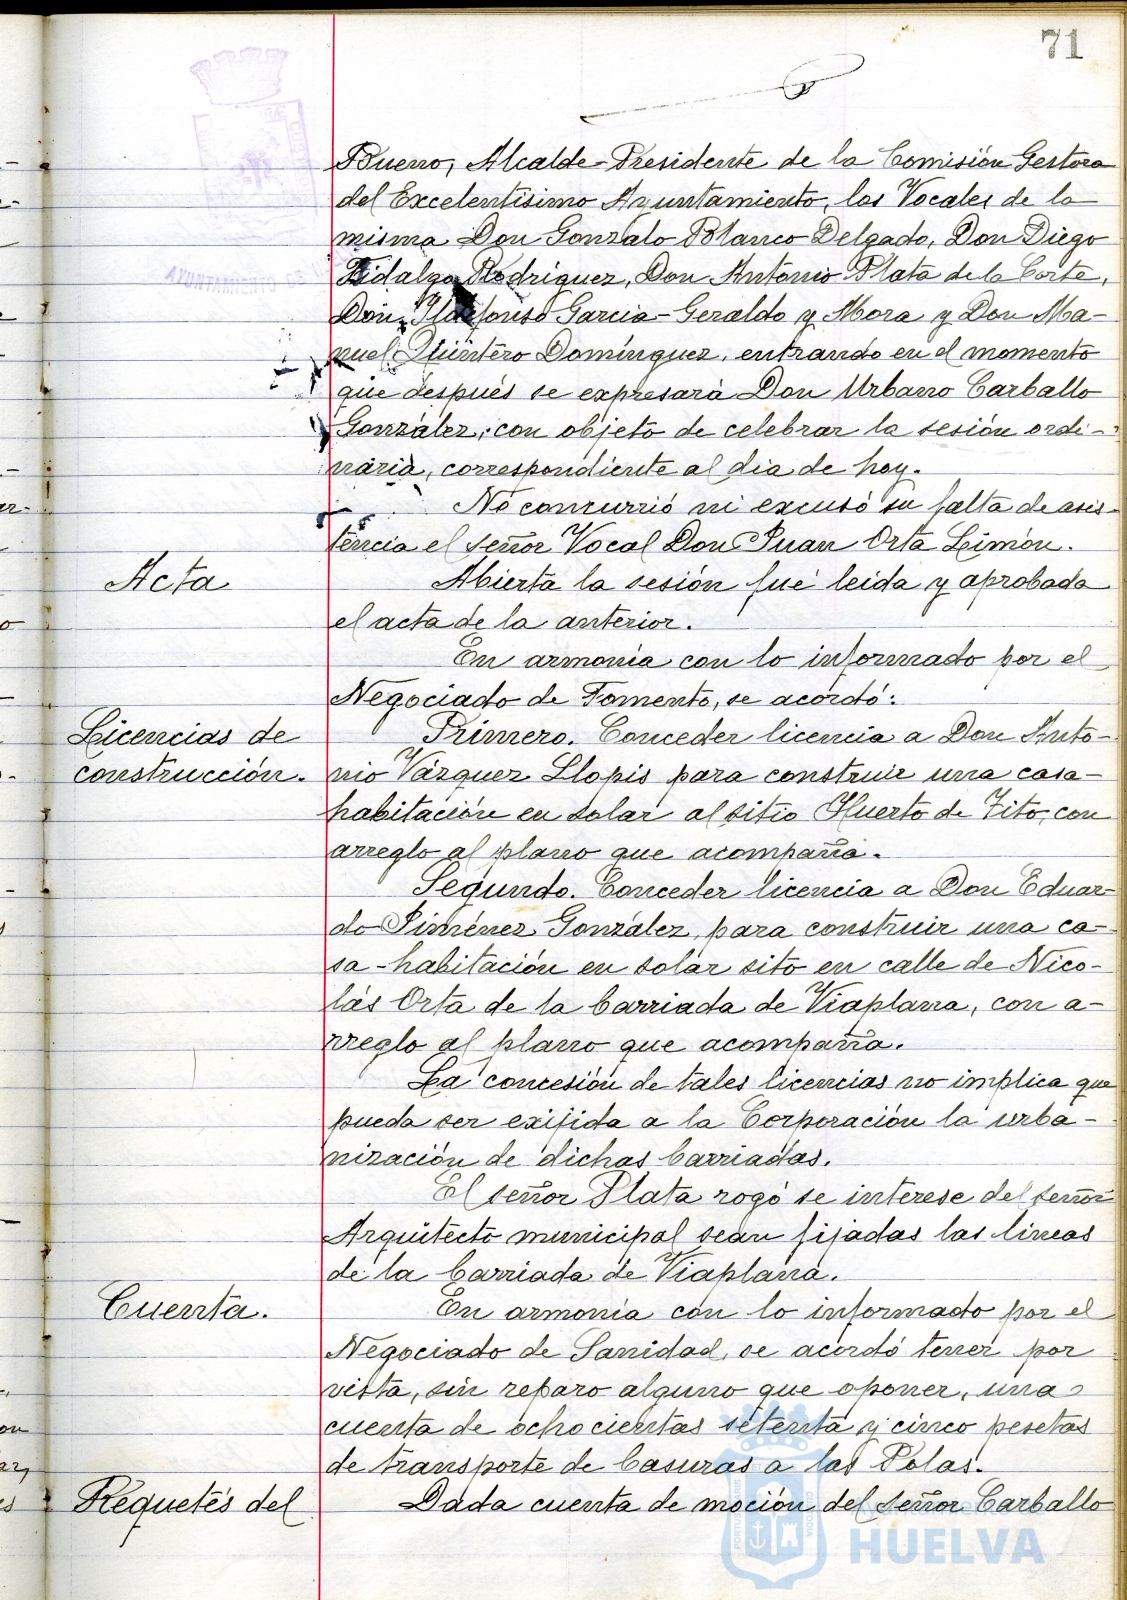 71
Bueno, Alcalde-Presidente de la Comisión Gestora
del Excelentísimo Ayuntamiento, los Vocales de la
misma Don Gonzalo Blanco Delgado, Don Diego
Fidalgo Rodríguez, Don Antonio Plata de la Corte,
Don Ildefonso García-Geraldo y Mora y Don Ma-
nuel Quintero Domínguez, entrando en el momento
que después se expresará Don Urbano Carballo
González, con objeto de celebrar la sesión ordi-
naria, correspondiente al día de hoy.
No concurrió ni excusó su falta de asis-
tencia el señor Vocal Don Juan Orta Limón.
Acta
Abierta la sesión fué leida y aprobada
el acta de la anterior.
En armonía con lo informado por el
Negociado de Fomento, se acordó:
Licencias de
construcción.
Primero. Conceder licencia a Don Anto-
nio Vázquez Llopis para construir una casa-
habitación en solar al sitio Huerto de Tito, con
arreglo al plano que acompaña.
Segundo. Conceder licencia a Don Eduar-
do Jiménez González, para construir una ca-
sa-habitación en solar sito en calle de Nico-
lás Orta de la barriada de Viaplana, con a-
rreglo al plano que acompaña.
La concesión de tales licencias no implica que
pueda ser exijida a la Corporación la urba-
nización de dichas barriadas.
El señor Plata rogó se interese del señor
Arquitecto municipal sean fijadas las líneas
de la barriada de Viaplana.
Cuenta.
En armonía con lo informado por el
Negociado de Sanidad, se acordó tener por
vista, sin reparo alguno que oponer, una
cuenta de ochocientas setenta y cinco pesetas
de transporte de basuras a las Polas.
Requetés del
Dada cuenta de moción del señor Carballo
HUELVA